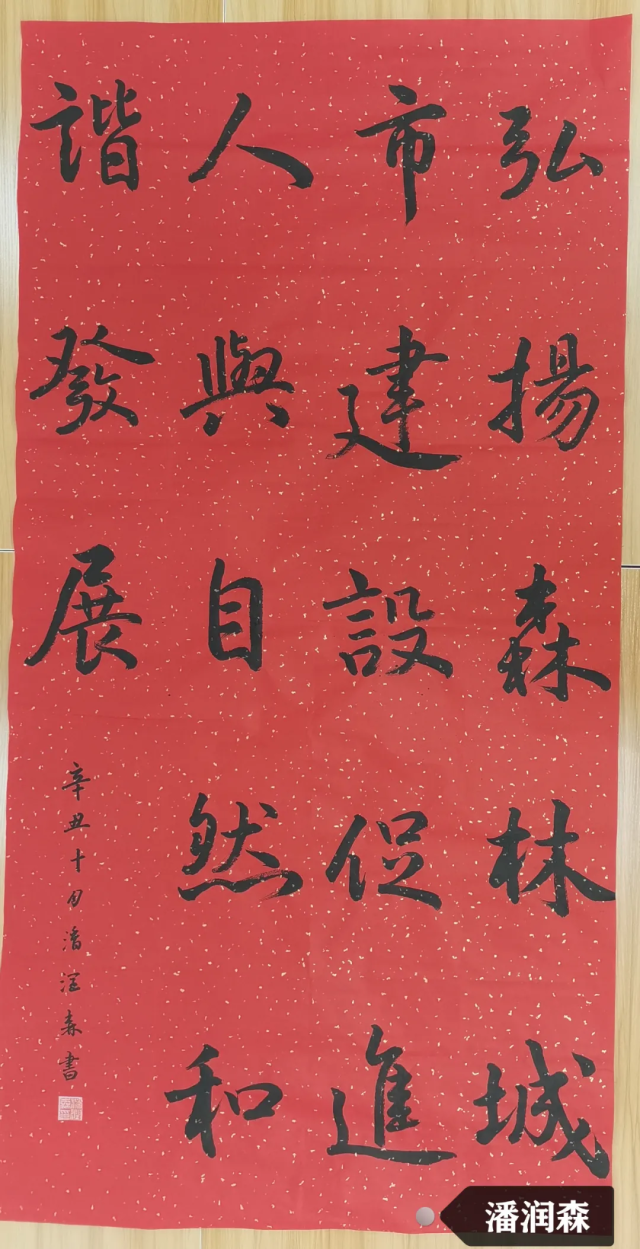 弘揚森林城
市建設促進
人與自然和
諧發展
辛丑十月潘润森書
潘润森